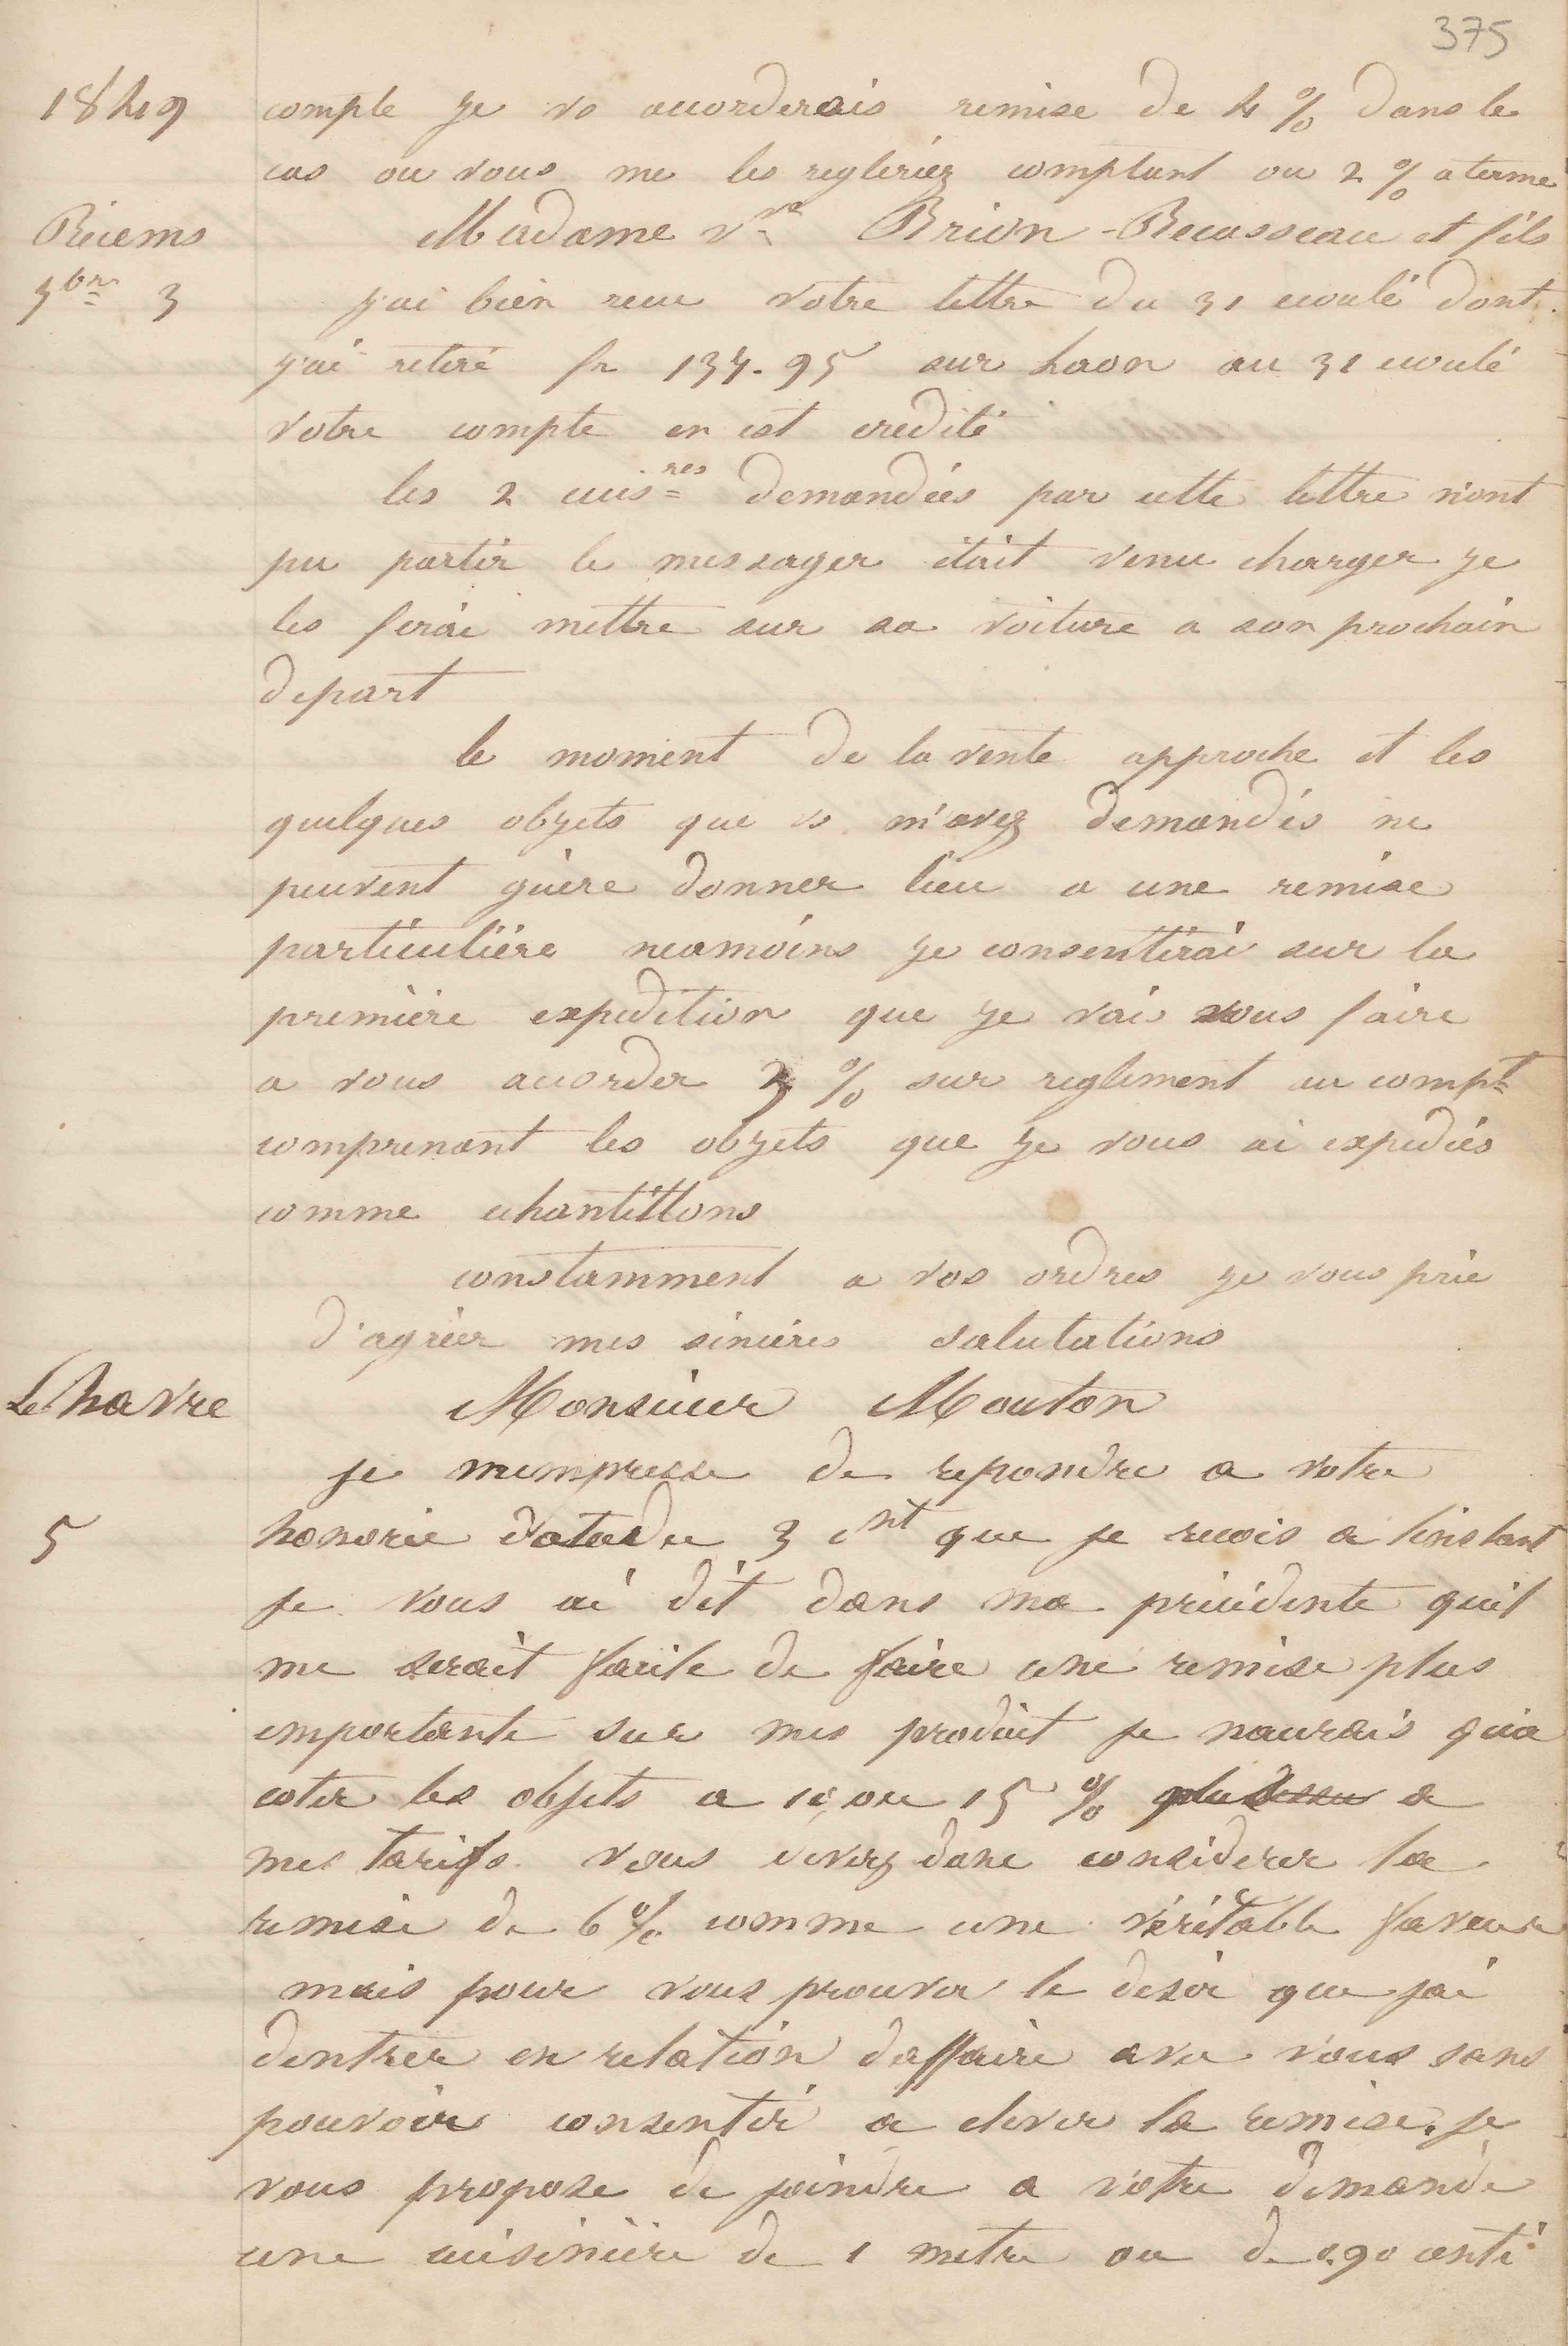 375
1849 compte je vs accorderais remise de 4 % dans le
cas ou vous me les regleriez comptant ou 2 % a terme
Madame Vve Brion-Recasseau et fils
7bre 3 j'ai bien recu votre lettre du 31 ecoulé dont
j'ai retiré fr 137.95 sur Laon au 31 ecoulé
votre compte en est credité
les 2 cuisres demandées par cette lettre n'ont
pu partir le messager était venu charger je
les ferai mettre sur sa voiture a son prochain
depart
le moment de la vente approche et les
quelques objets que vs m'avez demandés ne
peuvent guère donner lieu a une remise
particulière neamoins je consentirai sur la
première expedition que je vais vous faire
a vous accorder 3 % sur reglement au compt
comprenant les objets que je vous ai expediés
comme echantillons
constamment a vos ordres je vous prie
d'agréer mes sincères salutations
Le havre Monsieur Mouton
je mempresse de repondre a votre
5 honorée datedu 3 cnt que je recois a linstant
je vous ai dit dans ma précédente quil
me serait facile de faire une remise plus
emportante sur mes produit je naurais qu'a
coter les objets a 10 ou 15 % plu dessu a
mes tarifs vous devez donc considerer la
remise de 6 % comme une véritable faveur
mais pour vous prouver le desir que jai
dentrer en relation daffaire avec vous sans
pouvoir consentir a elever la remise, je
vous propose de joindre a votre demande
une cuisinière de 1 metre ou de 0.90 centi